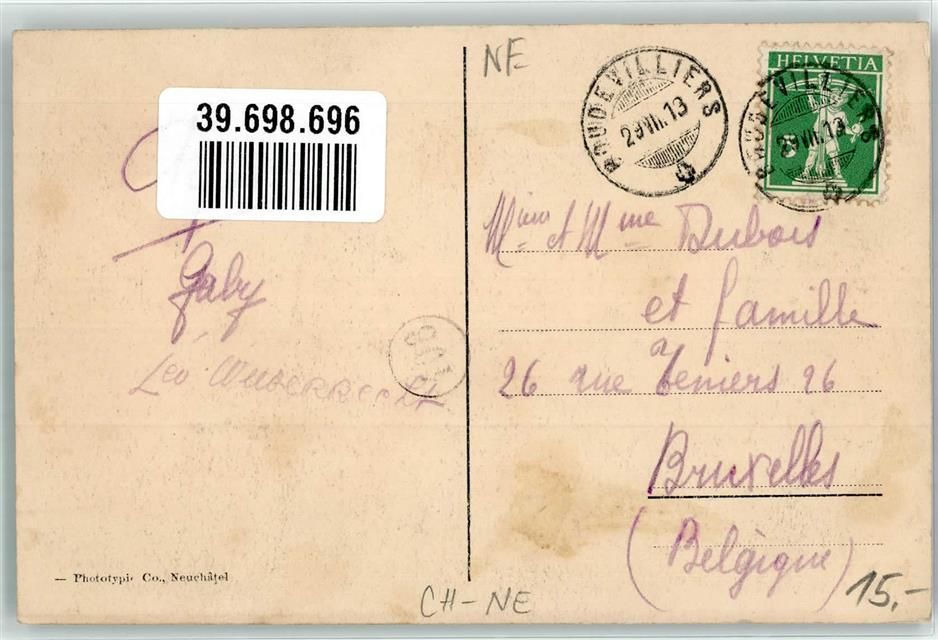 39.698.696
Gaby
Léo
— Phototypie Co., Neuchâtel
NE
BOUDEVILLIERS
29.VII.13
HELVETIA
BOUDEVILLIERS
29.VII.13
et Mme Dubois
et famille
26 rue Teniers 26
Bruxelles
(Belgique)
CH-NE
15.-